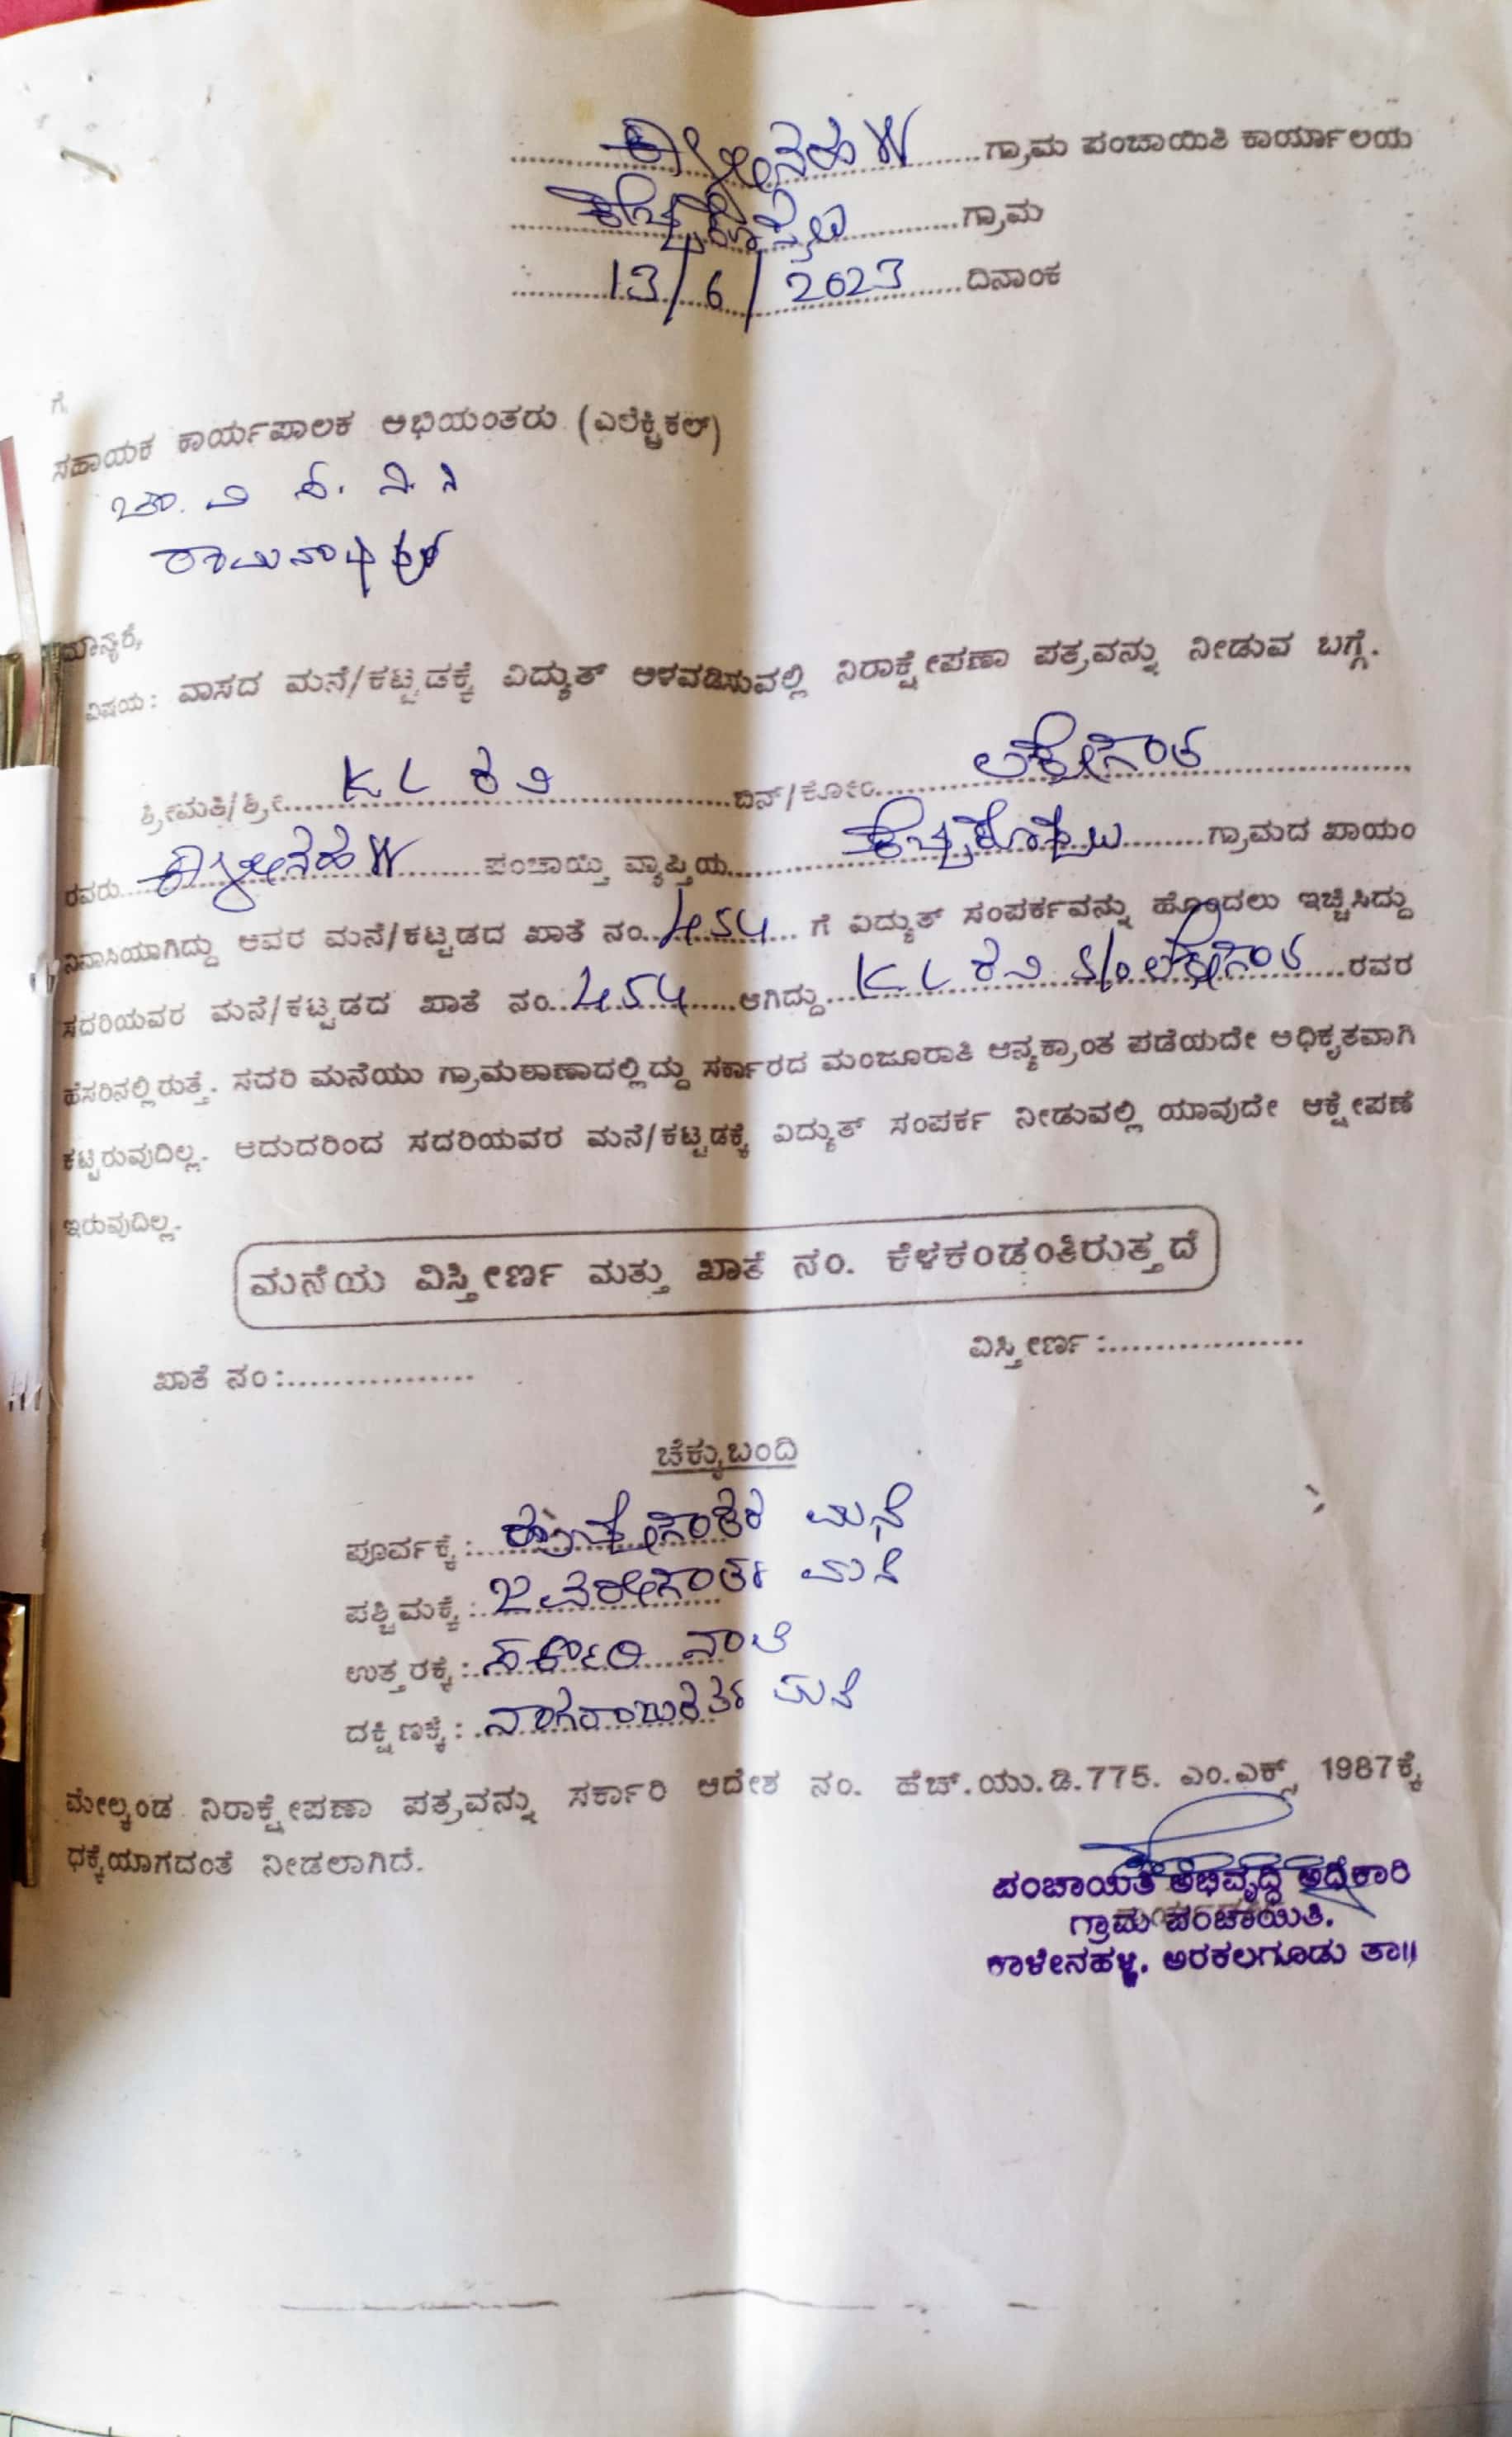 ಕಾಳೇನಹಳ್ಳಿ ಗ್ರಾಮ ಪಂಚಾಯಿತಿ ಕಾರ್ಯಾಲಯ
ಕೆಬ್ಬೆಕೊಪ್ಪಲು ಗ್ರಾಮ
13/6/2023 ದಿನಾಂಕ
ಗೆ,
ಸಹಾಯಕ ಕಾರ್ಯಪಾಲಕ ಅಭಿಯಂತರು (ಎಲೆಕ್ಟ್ರಿಕಲ್)
ಚಾ. ವಿ ಸ. ನಿ. ನಿ
ರಾಮನಾಥಪುರ
ಮಾನ್ಯರೆ,
ವಿಷಯ: ವಾಸದ ಮನೆ/ಕಟ್ಟಡಕ್ಕೆ ವಿದ್ಯುತ್ ಅಳವಡಿಸುವಲ್ಲಿ ನಿರಾಕ್ಷೇಪಣಾ ಪತ್ರವನ್ನು ನೀಡುವ ಬಗ್ಗೆ.
ಶ್ರೀಮತಿ/ಶ್ರೀ KL ರವಿ ಬಿನ್/ಕೋಂ ಲಕ್ಕೇಗೌಡ
ರವರು ಕಾಳೇನಹಳ್ಳಿ ಪಂಚಾಯ್ತಿ ವ್ಯಾಪ್ತಿಯ ಕೆಬ್ಬೆಕೊಪ್ಪಲು ಗ್ರಾಮದ ಖಾಯಂ
ನಿವಾಸಿಯಾಗಿದ್ದು ಅವರ ಮನೆ/ಕಟ್ಟಡದ ಖಾತೆ ನಂ. 454 ಗೆ ವಿದ್ಯುತ್ ಸಂಪರ್ಕವನ್ನು ಹೊಂದಲು ಇಚ್ಚಿಸಿದ್ದು
ಸದರಿಯವರ ಮನೆ/ಕಟ್ಟಡದ ಖಾತೆ ನಂ. 454 ಆಗಿದ್ದು KL ರವಿ S/o ಲಕ್ಕೇಗೌಡ ರವರ
ಹೆಸರಿನಲ್ಲಿರುತ್ತೆ. ಸದರಿ ಮನೆಯು ಗ್ರಾಮಠಾಣಾದಲ್ಲಿದ್ದು ಸರ್ಕಾರದ ಮಂಜೂರಾತಿ ಅನ್ಯಕ್ರಾಂತ ಪಡೆಯದೇ ಅಧಿಕೃತವಾಗಿ
ಕಟ್ಟಿರುವುದಿಲ್ಲ. ಆದುದರಿಂದ ಸದರಿಯವರ ಮನೆ/ಕಟ್ಟಡಕ್ಕೆ ವಿದ್ಯುತ್ ಸಂಪರ್ಕ ನೀಡುವಲ್ಲಿ ಯಾವುದೇ ಆಕ್ಷೇಪಣೆ
ಇರುವುದಿಲ್ಲ.
ಮನೆಯ ವಿಸ್ತೀರ್ಣ ಮತ್ತು ಖಾತೆ ನಂ. ಕೆಳಕಂಡಂತಿರುತ್ತದೆ
ಖಾತೆ ನಂ:.................. ವಿಸ್ತೀರ್ಣ:...................
ಚೆಕ್ಕುಬಂದಿ
ಪೂರ್ವಕ್ಕೆ: ಮನೆ
ಪಶ್ಚಿಮಕ್ಕೆ: ಜವರೇಗೌಡರ ಮನೆ
ಉತ್ತರಕ್ಕೆ: ಸರ್ಕಾರಿ ನಾಲೆ
ದಕ್ಷಿಣಕ್ಕೆ: ಮನೆ
ಮೇಲ್ಕಂಡ ನಿರಾಕ್ಷೇಪಣಾ ಪತ್ರವನ್ನು ಸರ್ಕಾರಿ ಆದೇಶ ನಂ. ಹೆಚ್.ಯು.ಡಿ.775. ಎಂ.ಎಕ್ಸ್, 1987ಕ್ಕೆ
ಧಕ್ಕೆಯಾಗದಂತೆ ನೀಡಲಾಗಿದೆ.
ಪಂಚಾಯಿತಿ ಅಭಿವೃದ್ಧಿ ಅಧಿಕಾರಿ
ಗ್ರಾಮ ಪಂಚಾಯಿತಿ.
ಕಾಳೇನಹಳ್ಳಿ. ಅರಕಲಗೂಡು ತಾ||